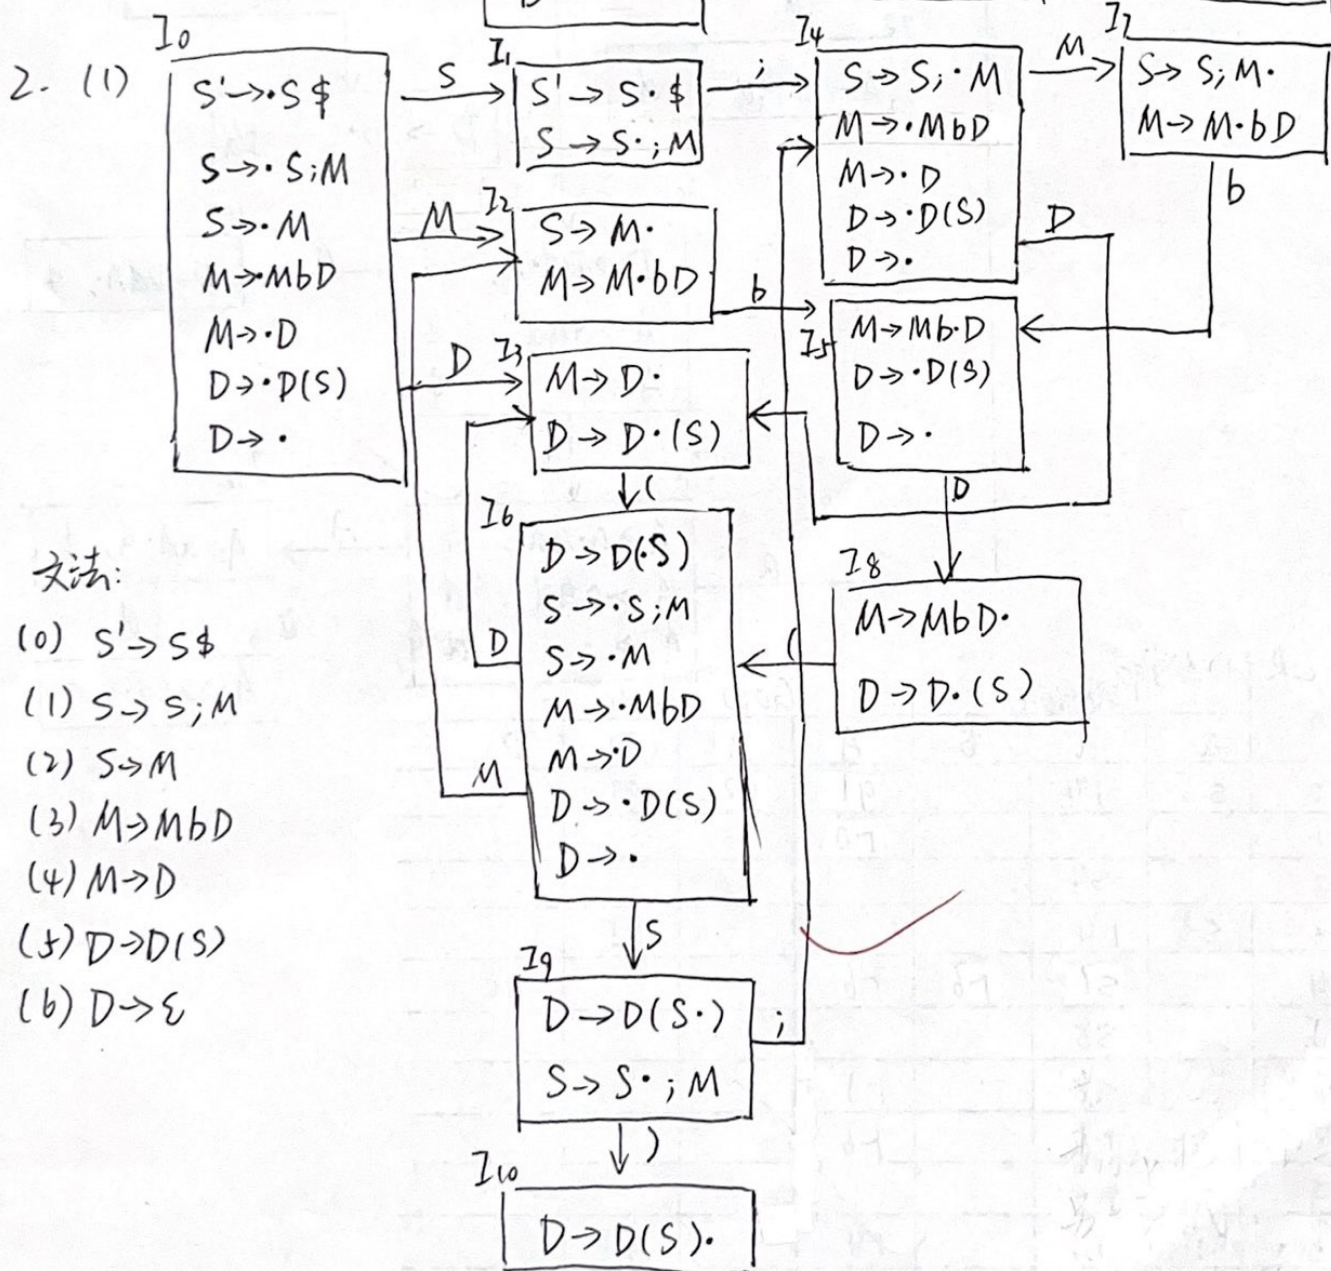 2. (1)
I0
S'→·S$
S→·S;M
S→·M
M→·MbD
M→·D
D→·D(S)
D→·
S
M
D
I1
S'→S·$
S→S·;M
;
I2
S→M·
M→M·bD
b
I3
M→D·
D→D·(S)
(
I4
S→S;·M
M→·MbD
M→·D
D→·D(S)
D→·
M
D
I7
S→S;M·
M→M·bD
b
I5
M→Mb·D
D→·D(S)
D→·
D
I6
D→D(·S)
S→·S;M
S→·M
M→·MbD
M→·D
D→·D(S)
D→·
D
M
S
I8
M→MbD·
D→D·(S)
(
I9
D→D(S·)
S→S·;M
;
)
I10
D→D(S)·
文法:
(0) S'→S$
(1) S→S;M
(2) S→M
(3) M→MbD
(4) M→D
(5) D→D(S)
(6) D→ε